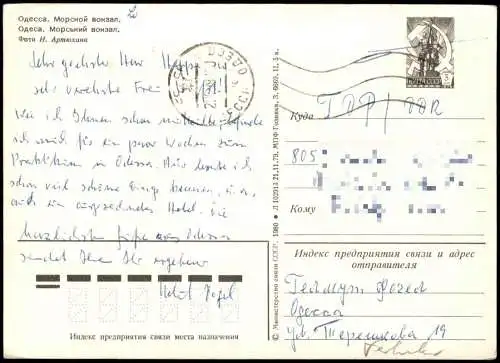 Одесса. Морской вокзал.
Одеса. Морський вокзал.
Фото И. Артюхина
Sehr geehrter Herr
sehr verehrte Frau
Wie ich Ihnen schon mitteilte, befinde
ich mich für ein paar Wochen zum
Praktikum in Odessa. Hier lernte ich
schon viel schöne Dinge kennen, u.a.
auch ein ausgezeichnetes Hotel. Die
herzlichsten Grüße aus Odessa
sendet Ihnen Ihr ergebener
Helmut Vogel
Индекс предприятия связи места назначения
© Министерство связи СССР. 1980
Куда
ГДР / DDR
805
Кому
Индекс предприятия связи и адрес
отправителя
Гелмут Фогел
Одесса
ул. Терешкова 19